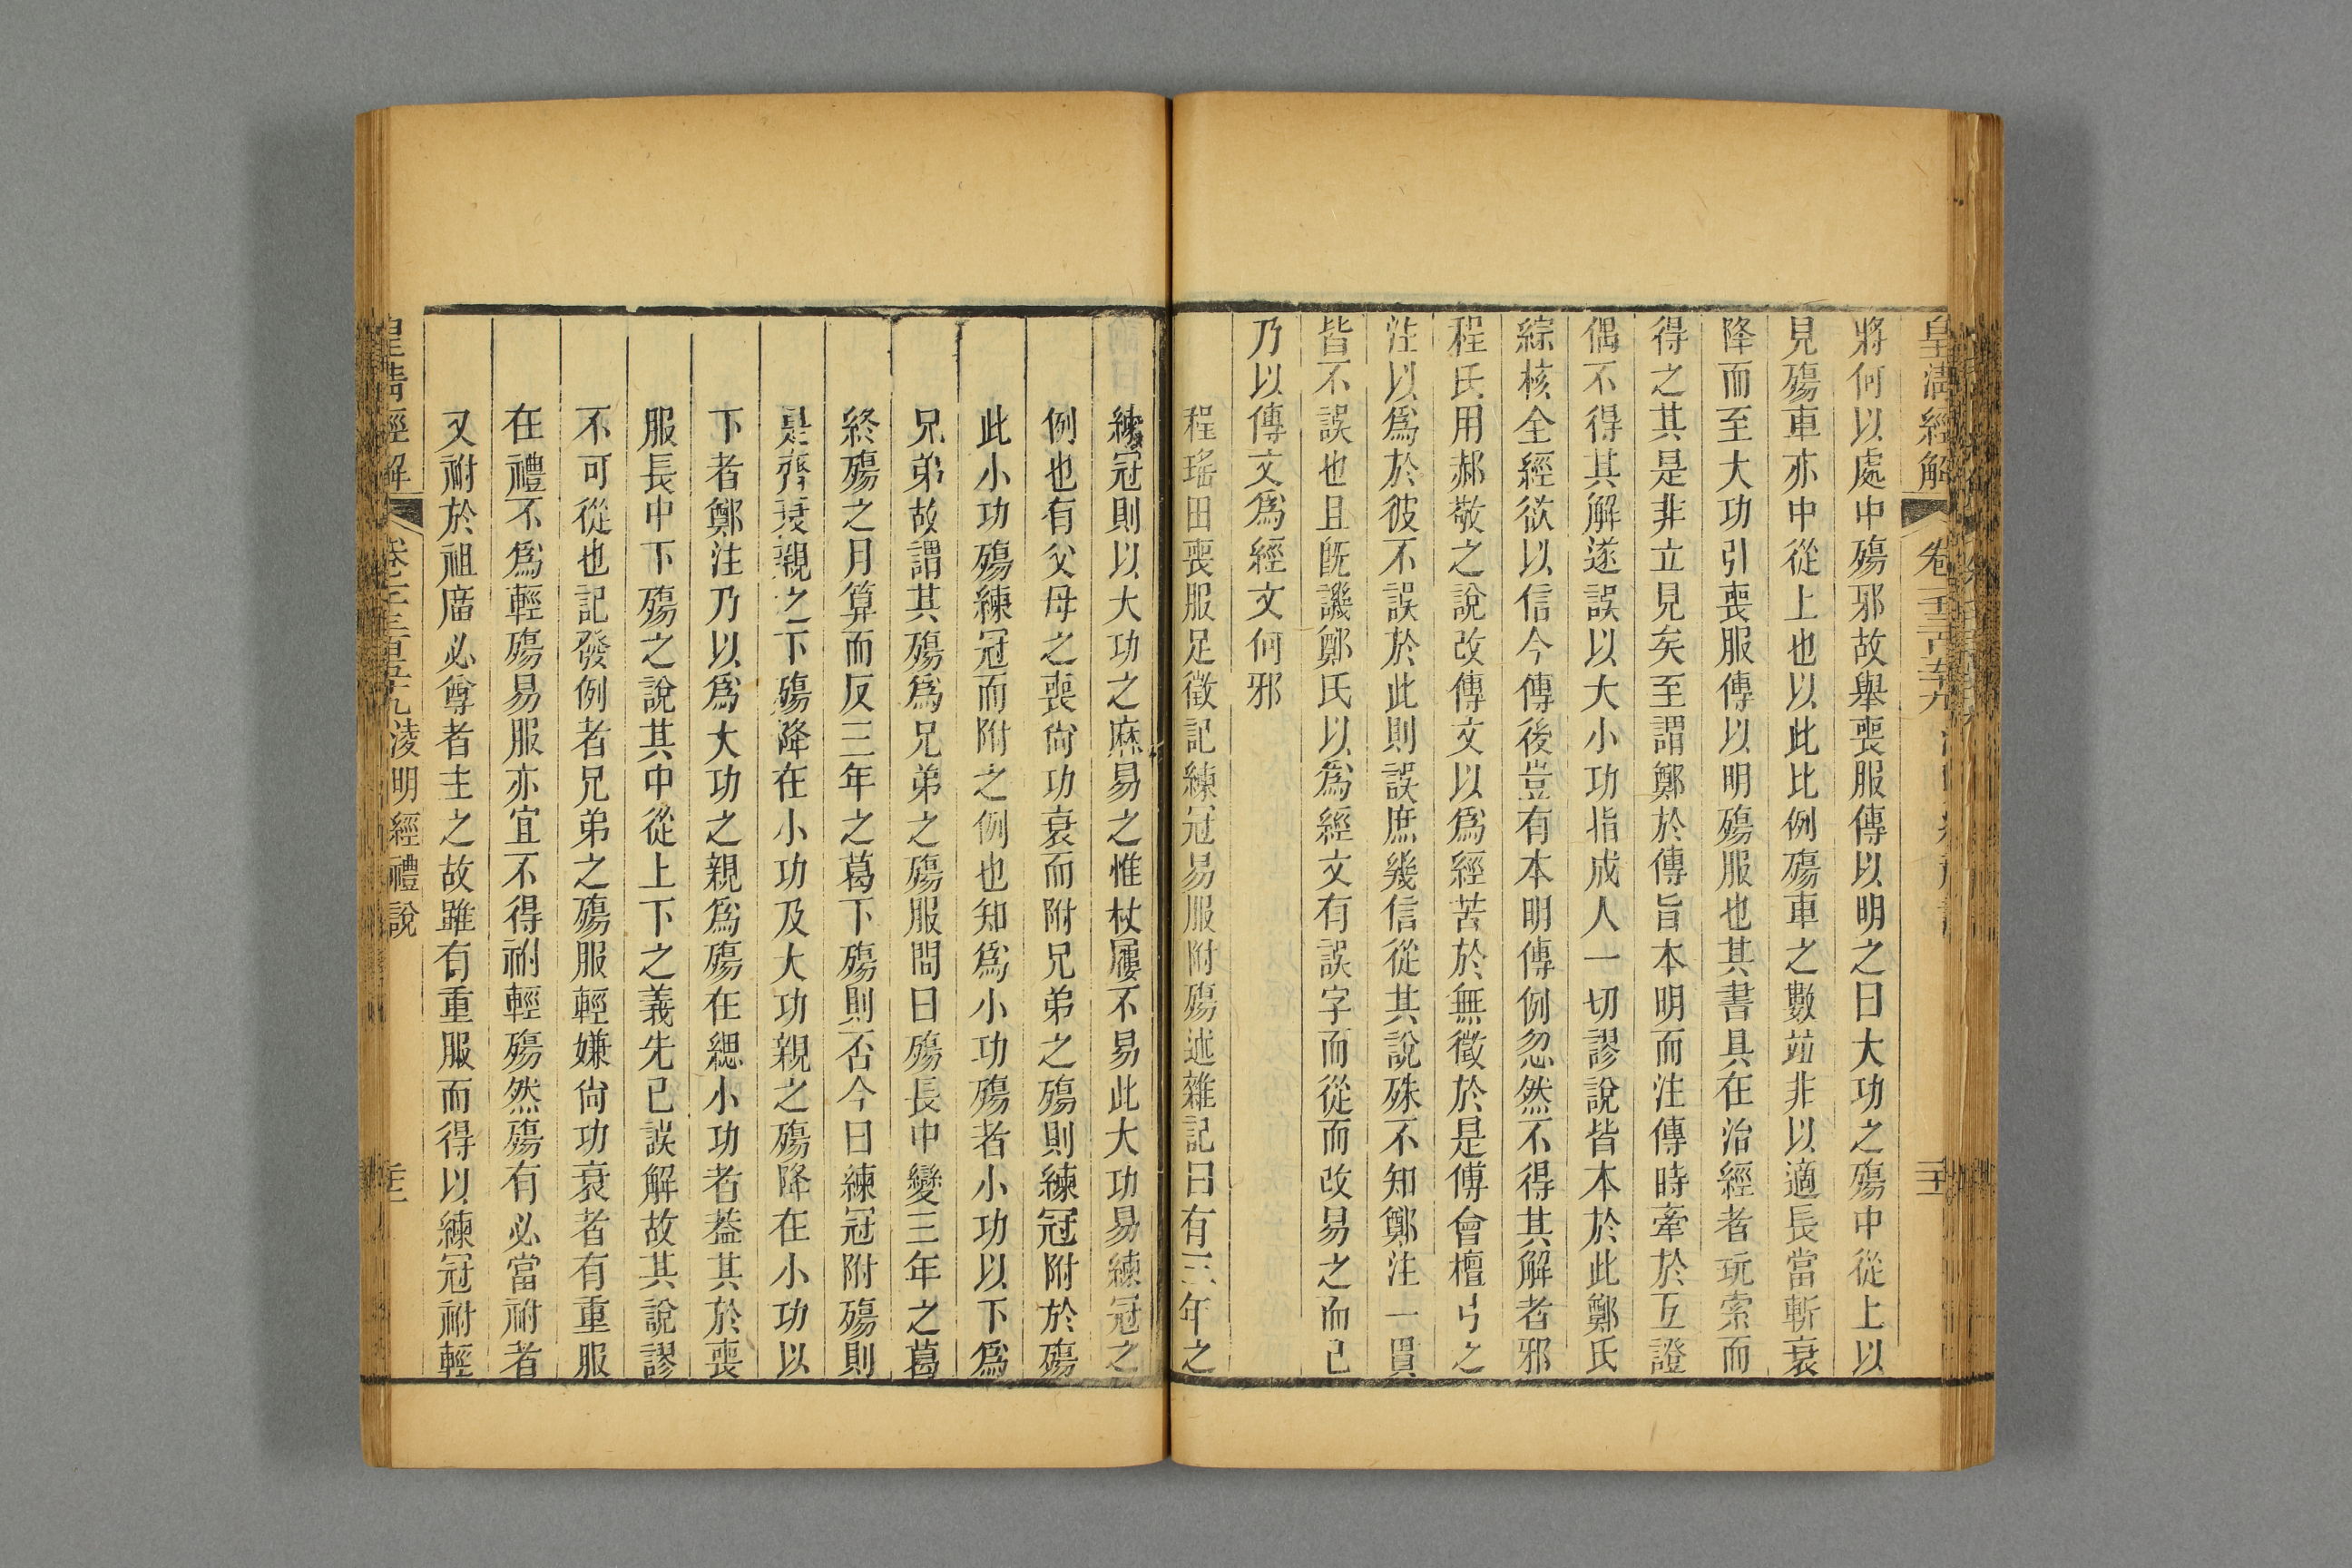 皇清經解
將何以處中殤邪故舉喪服傳以明之曰大功之殤中從上以
見殤車亦中從上也以此比例殤車之數竝非以適長當斬衰
降而至大功引喪服傳以明殤服也其書具在治經者玩索而
得之其是非立見矣至謂鄭於傳旨本明而注傳時牽於互證
偶不得其解遂誤以大小功指成人一切謬說皆本於此鄭氏
綜核全經欲以信今傳後豈有本明傳例忽然不得其解者邪
程氏用郝敬之說改傳文以爲經苦於無徵於是傅會檀弓之
注以爲於彼不誤於此則誤庶幾信從其說殊不知鄭注一貫
皆不誤也且旣譏鄭氏以爲經文有誤字而從而改易之而已
乃以傳文爲經文何邪
程瑤田喪服足徵記練冠易服附殤述雜記曰有三年之
練冠則以大功之麻易之惟杖屨不易此大功易練冠之
例也有父母之喪尙功衰而附兄弟之殤則練冠附於殤
此小功殤練冠而附之例也知爲小功殤者小功以下爲
兄弟故謂其殤爲兄弟之殤服問曰殤長中變三年之葛
終殤之月算而反三年之葛下殤則否今曰練冠附殤則
是齊衰親之下殤降在小功及大功親之殤降在小功以
下者鄭注乃以爲大功之親爲殤在緦小功者葢其於喪
服長中下殤之說其中從上下之義先已誤解故其說謬
不可從也記發例者兄弟之殤服輕嫌尙功衰者有重服
在禮不爲輕殤易服亦宜不得祔輕殤然殤有必當祔者
又祔於祖廟必尊者主之故雖有重服而得以練冠祔輕
皇清經解
凌明經禮說